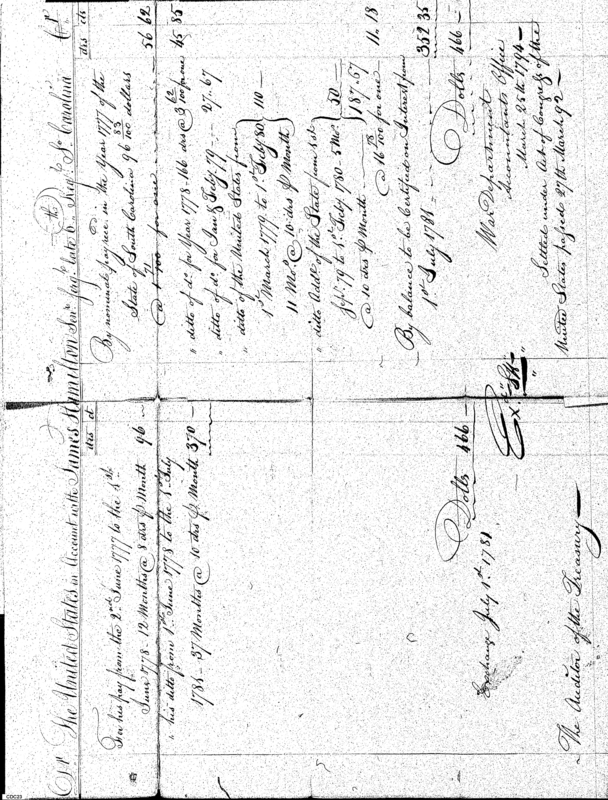 Dr. The United States in Account with James Hamilton Senr. Sergt. late 6th Regt. So. Carolina Cr.
drs ct
For his pay from the 2nd June 1777 to the 1st
June 1778 - 12 Months @ 8 drs p Month 96 -
" his ditto from 1st June 1778 to the 1st July
1781 - 37 Months @ 10 drs p Month 370 -
Dolls 466 -
Exchange July 1st 1781
The Auditor of the Treasury
drs cts
By nominal pay rec'd in the Year 1777 of the
State of South Carolina 96 83/100 dollars
@ 1 71/100 for one 56 62
" ditto of do. for Year 1778 - 166 drs @ 3 62/100 p one 45 85
" ditto of do. for Jan & Feby. 79 - - 27.67
" ditto of the United States from
1st March 1779 to 1st Feby 80 } 110 -
11 Mos. @ 10 drs p Month
" ditto Addl. of the State from 1st
Feby. 79 to 1st Feby 1780 - 5 Mo. } 50 -
@ 10 drs p Month - - 187.67
@ 16 78/100 for one 11. 18
By balance to be Certified on Interest from
1st July 1781 - - 352 35
Dolls 466 -
War Department
Accountants Office
March 25th 1794 -
Settled under Act of Congress of the
United States passed 27th March 92 -
CDC23